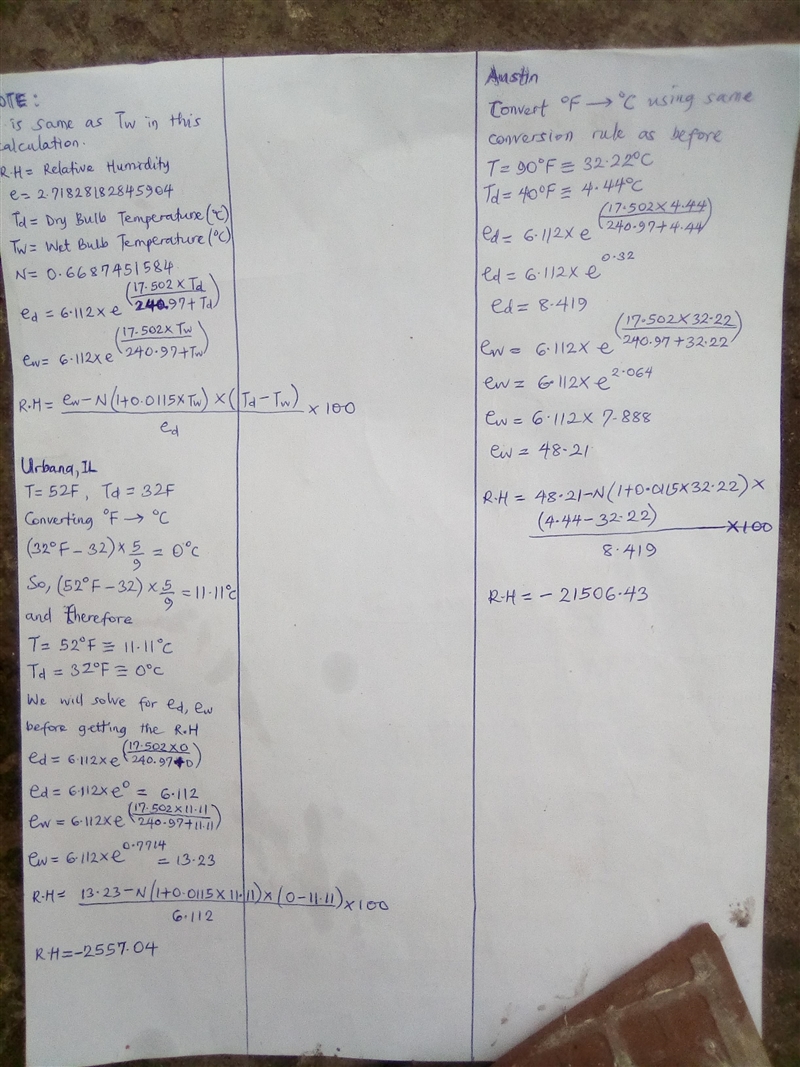 OTE:
is same as Tw in this
calculation.
R.H = Relative Humidity
e = 2.71828182845904
Td = Dry Bulb Temperature (°C)
Tw = Wet Bulb Temperature (°C)
N = 0.6687451584
ed = 6.112 x e^(17.502 x Td / 240.97 + Td)
ew = 6.112 x e^(17.502 x Tw / 240.97 + Tw)
R.H = ew - N(1+0.0115 x Tw) x (Td - Tw) / ed x 100
Urbana, IL
T = 52F, Td = 32F
Converting °F → °C
(32°F - 32) x 5/9 = 0°C
So, (52°F - 32) x 5/9 = 11.11°C
and therefore
T = 52°F ≡ 11.11°C
Td = 32°F ≡ 0°C
We will solve for ed, ew
before getting the R.H
ed = 6.112 x e^(17.502 x 0 / 240.97 + 0)
ed = 6.112 x e^0 = 6.112
ew = 6.112 x e^(17.502 x 11.11 / 240.97 + 11.11)
ew = 6.112 x e^0.7714 = 13.23
R.H = 13.23 - N(1+0.0115 x 11.11) x (0 - 11.11) / 6.112 x 100
R.H = -2557.04
Austin
Convert °F → °C using same
conversion rule as before
T = 90°F ≡ 32.22°C
Td = 40°F ≡ 4.44°C
ed = 6.112 x e^(17.502 x 4.44 / 240.97 + 4.44)
ed = 6.112 x e^0.32
ed = 8.419
ew = 6.112 x e^(17.502 x 32.22 / 240.97 + 32.22)
ew = 6.112 x e^2.064
ew = 6.112 x 7.888
ew = 48.21
R.H = 48.21 - N(1+0.0115 x 32.22) x
(4.44 - 32.22) x 100
8.419
R.H = - 21506.43